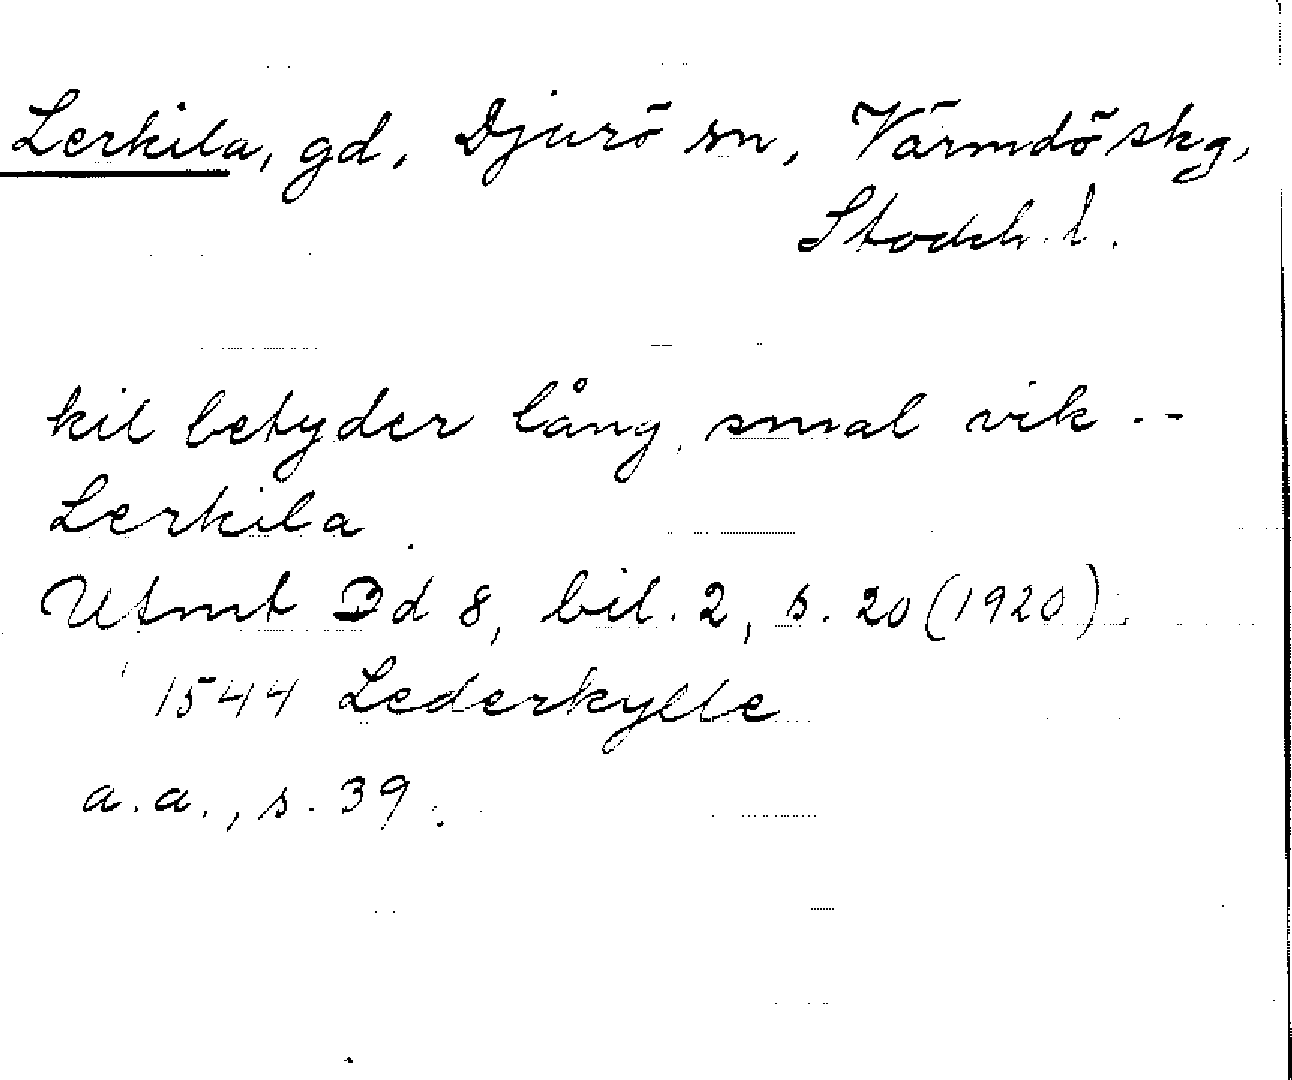 Lerkila, gd, Djurö sn, Värmdö skg,
Stockh. l.
kil betyder lång, smal vik --
Lerkila.
Utmt Dd 8, bil. 2, s. 20 (1920).
1544 Lederkylle
a.a., s. 39.